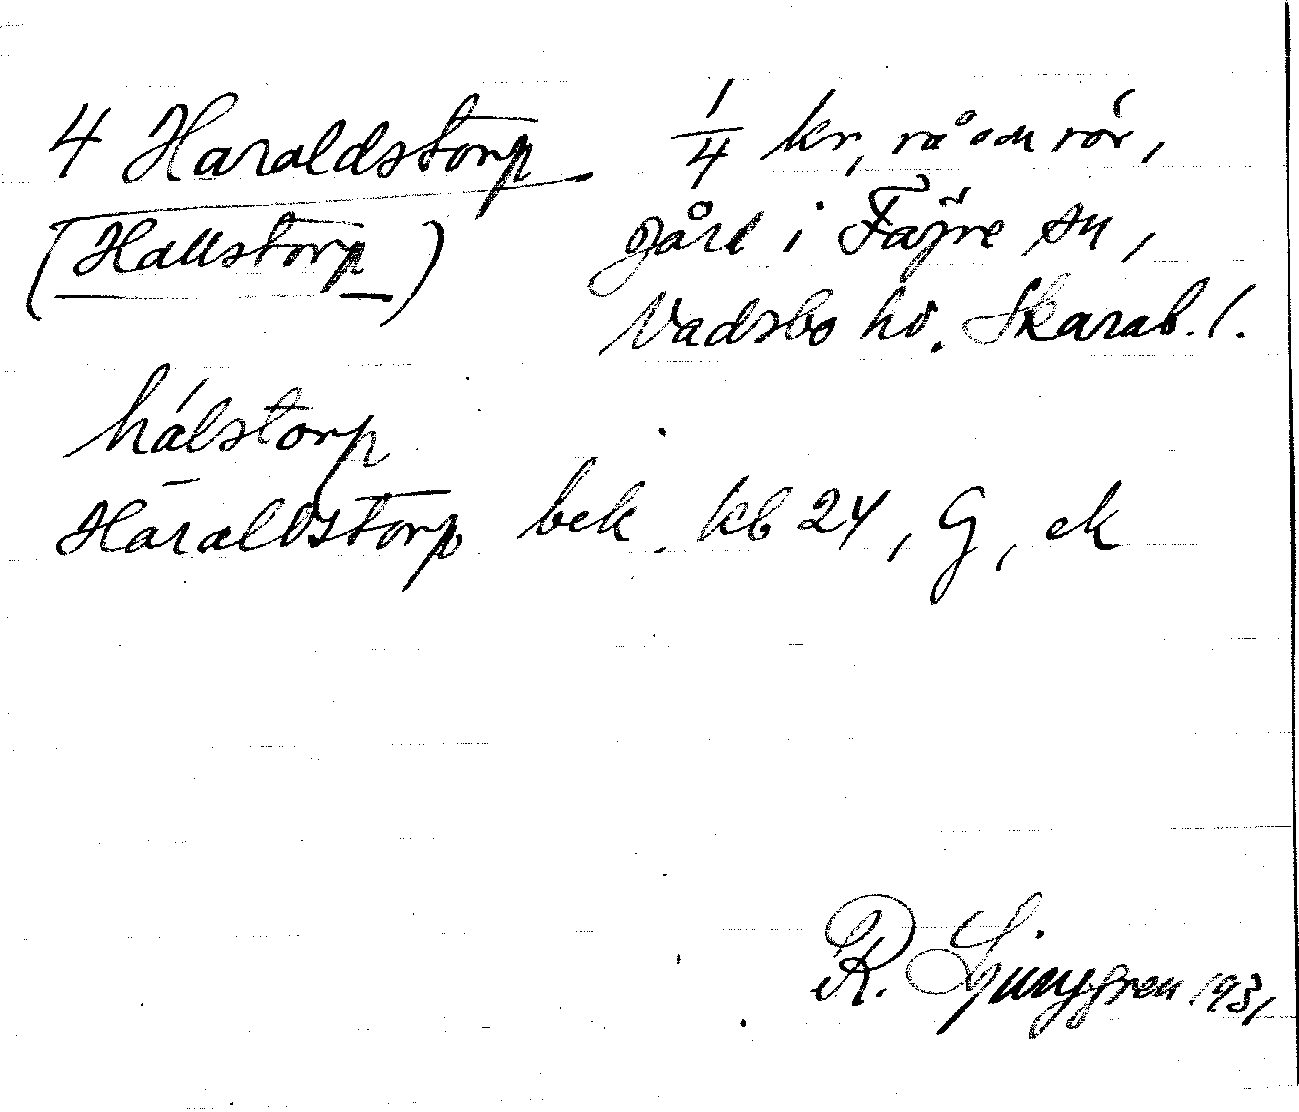 4 Haraldstorp 1/4 kr, rå om rör,
(Hallstorp) gård i Fägre sn,
Vadsbo hd. Skarab. l.
hálstorp
Haraldstorp bek. kb 24, G, ek
R. Ljunggren 1931